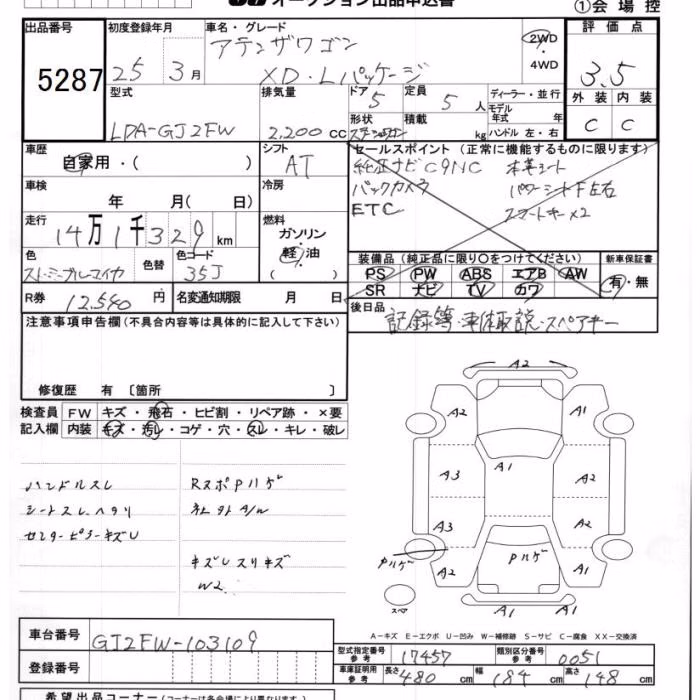 オークション出品申込書
①会場控
出品番号 5287
初度登録年月 25 3月
車名・グレード アテンザワゴン XD・Lパッケージ
2WD ・4WD
評価点 3.5
外装 C 内装 C
型式 LDA-GJ2FW
排気量 2,200 cc
ドア 5 定員 5人
形状 積載 kg
ディーラー・並行
モデル年式 年
ハンドル 左・右
車歴 自家用・( )
シフト AT
車検 年 月( 日)
冷房
走行 14万1千329km
燃料 ガソリン 軽油 ( )
色 ストーミーブルーマイカ 色替 色コード 35J
R券 12,540円 名変通知期限 月 日
セールスポイント (正常に機能するものに限ります)
純正ナビ C9NC 本革シート
バックカメラ パワーシートF左右
ETC スマートキー×2
装備品 (純正品に限り○をつけてください) 新車保証書
PS PW ABS エアB AW 有・無
SR ナビ TV カワ
後日品 記録簿・車体取説・スペアキー
注意事項申告欄 (不具合内容等は具体的に記入して下さい)
修復歴 有 〔箇所 〕
検査員記入欄
FW キズ・飛石・ヒビ割・リペア跡・×要
内装 キズ・汚レ・コゲ・穴・スレ・キレ・破レ
ハンドルスレ RスポPハゲ
シートスレヘタリ
センターピラーキズU
キズUスリキズ
W2
A2
A2 A1
A3 A1 A2
A3 A2
Pハゲ A2 Pハゲ A1 A1
スペア
A－キズ E－エクボ U－凹み W－補修跡 S－サビ C－腐食 XX－交換済
車台番号 GJ2FW-103109
登録番号
型式指定番号 参考 17457 類別区分番号 参考 0051
車庫証明用 参考 長さ 480cm 幅 184cm 高さ 148cm
希望出品コーナー